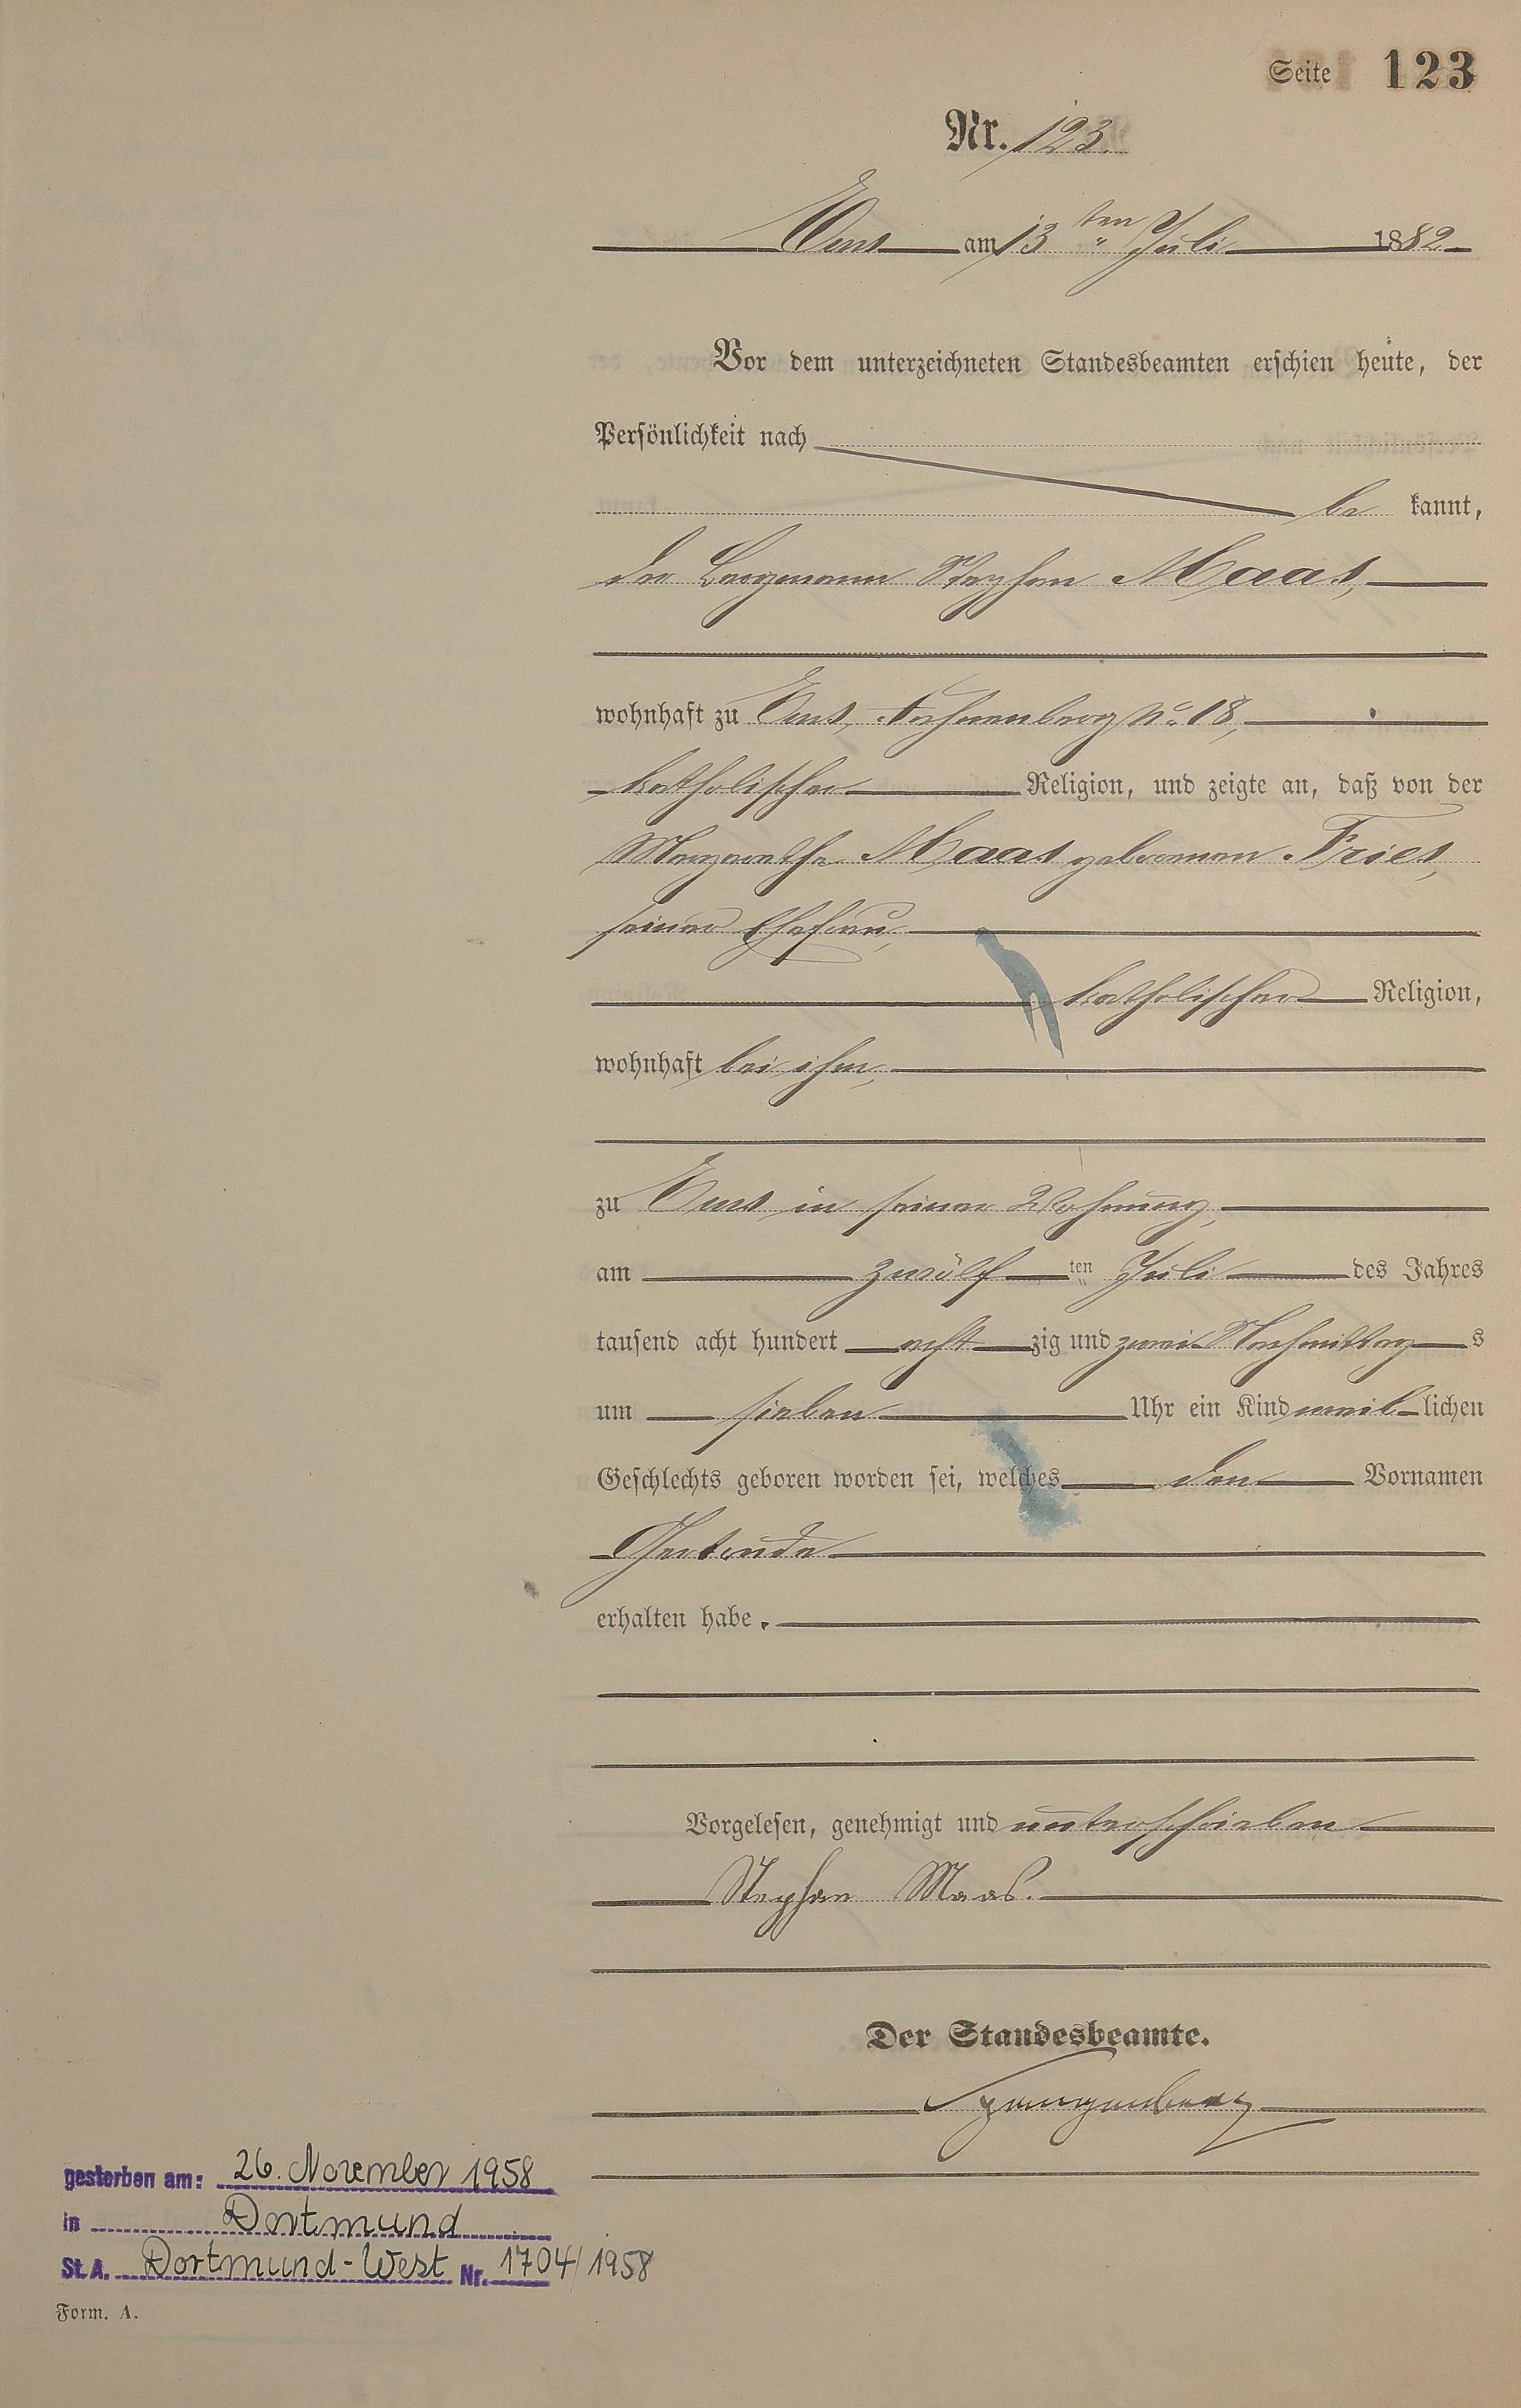 Seite 123
Nr. 123.
Ems am 13ten Juli 1882
Vor dem unterzeichneten Standesbeamten erschien heute, der
Persönlichkeit nach
be kannt,
der Bergmann Stephan Maas,
wohnhaft zu Ems, No 18,
katholischer Religion, und zeigte an, daß von der
Margarethe Maas geborenen Fries,
seiner Ehefrau,
katholischer Religion,
wohnhaft bei ihm,
zu Ems in seiner Wohnung,
am zwölf ten Juli des Jahres
tausend acht hundert acht zig und zwei Nachmittag s
um sieben Uhr ein Kind weib lichen
Geschlechts geboren worden sei, welches den Vornamen
Gertrude
erhalten habe.
Vorgelesen, genehmigt und unterschrieben
Stephan Maas.
Der Standesbeamte.
Spangenberg
gestorben am: 26. November 1958
in Dortmund
St.A. Dortmund-West Nr. 1704/1958
Form. A.